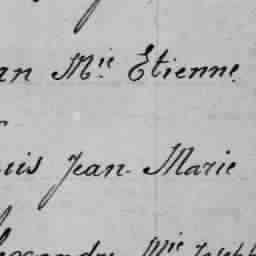 an M.ie Etienne
uis Jean-Marie
lexandre M.ie Joseph